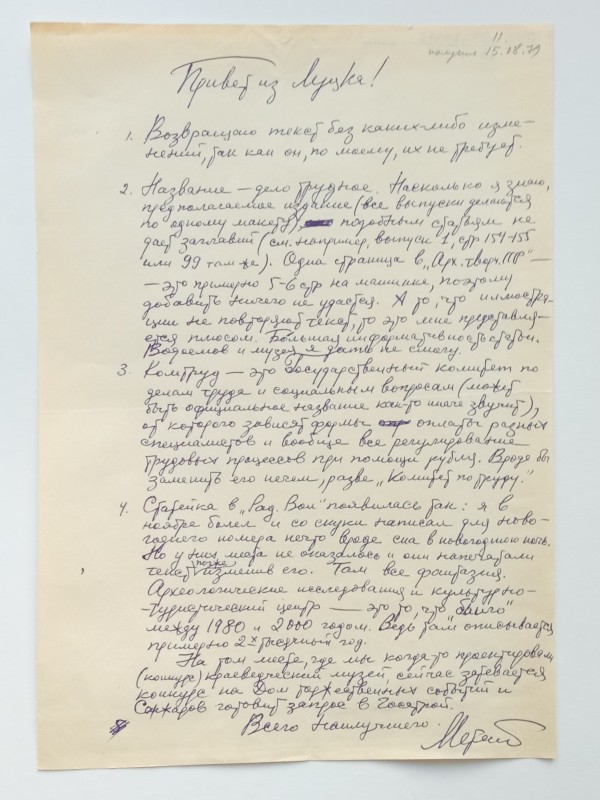 11.
получил 15.08.79
Привет из Луцка!
1. Возвращаю текст без каких-либо изме-
нений, так как он, по моему, их не требует.
2. Название — дело трудное. Насколько я знаю,
предполагаемое издание (все выпуски делаются
по одному макету), подобным статьям не
дает заглавий (см. например, выпуск 1, стр 154-155
или 99 там же). Одна страница в „Арх. творч.
— это примерно 5-6 стр на машинке, поэтому
добавить ничего не удастся. А то, что иллюстра-
ции не повторяют текст, то это мне представля-
ется плюсом. Большая информативность статьи.
Водоемов и музея я дать не смогу.
3. Комтруд — это Государственный комитет по
делам труда и социальным вопросам (может
быть официальное название как-то иначе звучит),
от которого зависят формы оплаты разных
специалистов и вообще все регулирование
трудовых процессов при помощи рубля. Вроде бы
заменить его нечем, разве „Комитет по труду."
4. Статейка в „Рад. Вол" появилась так: я в
ноябре болел и со скуки написал для ново-
годнего номера нечто вроде сна в новогоднюю ночь.
Но у них места не оказалось и они напечатали
текст позже изменив его. Там все фантазия.
Археологические исследования и культурно-
-туристический центр — это то, что „было"
между 1980 и 2000 годом. Ведь там описывается
примерно 2х тысячный год.
На том месте, где мы когда-то проектировали
(конкурс) краеведческий музей, сейчас затевается
конкурс на Дом торжественных событий и
готовит запрос в Госстрой.
Всего наилучшего.